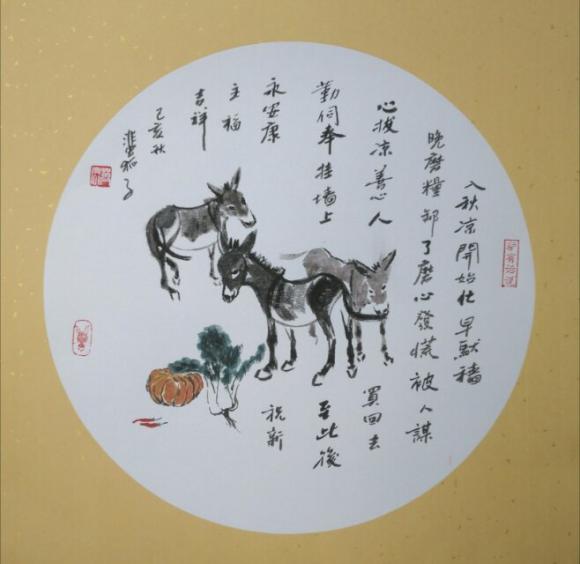 入秋凉開始忙早馱穡
晚磨糧卸了磨心發慌被人謀
心拔凉善心人買回去
勤伺奉挂墻上至此後
永安康祝新
主福
吉祥
己亥秋